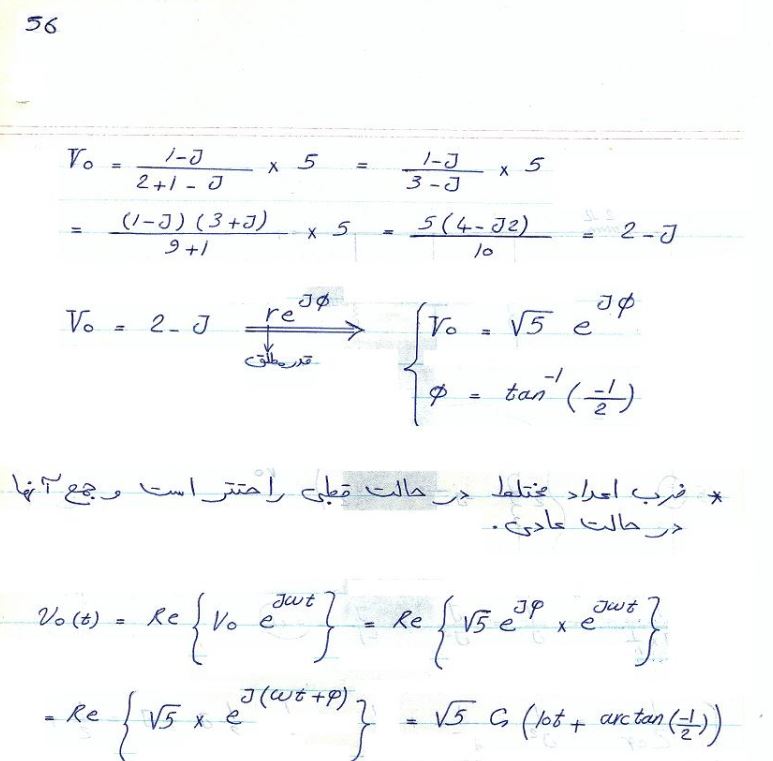 56
V₀ = (1-J)/(2+1-J) × 5 = (1-J)/(3-J) × 5
= ((1-J)(3+J))/(9+1) × 5 = (5(4-J2))/10 = 2-J
V₀ = 2-J ⟹ re^(Jφ) { V₀ = √5 e^(Jφ)
قدر مطلق
φ = tan⁻¹(-1/2)
* ضرب اعداد مختلط در حالت قطبی راحتتر است و جمع آنها
در حالت عادی.
V₀(t) = Re { V₀ e^(Jωt) } = Re { √5 e^(Jφ) × e^(Jωt) }
= Re { √5 × e^(J(ωt+φ)) } = √5 Cos (10t + arctan(-1/2))